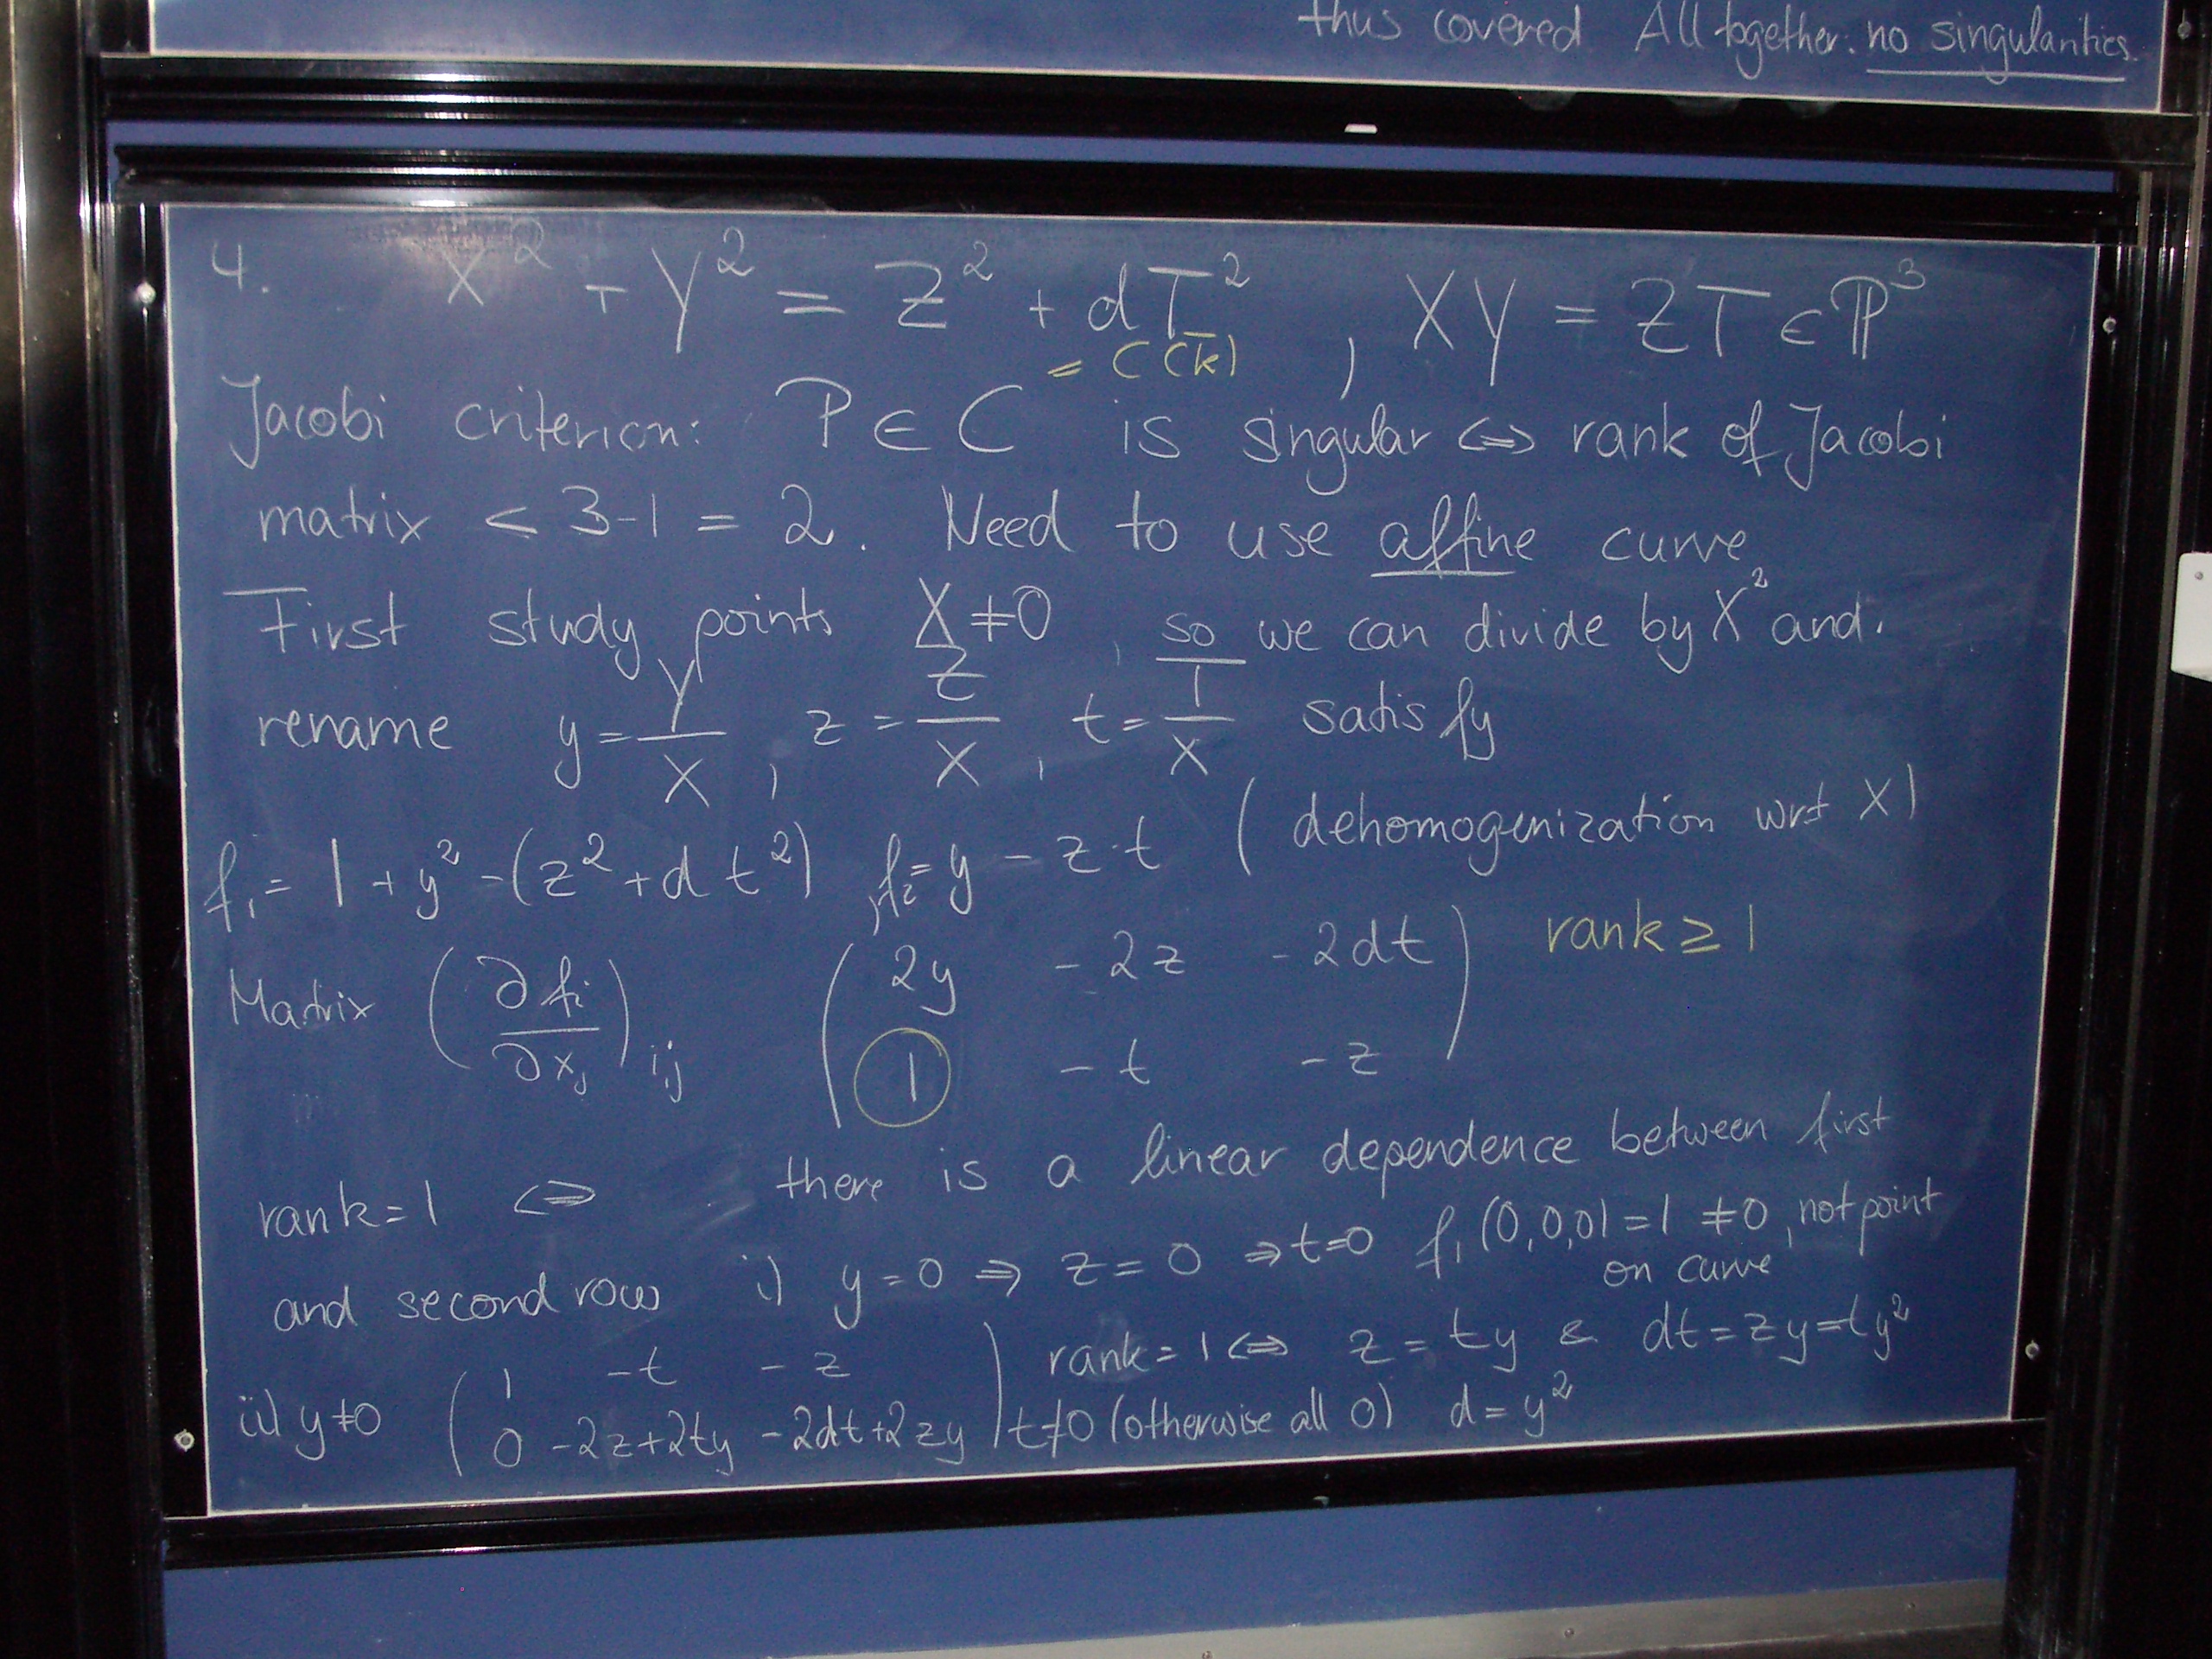 thus covered All together: no singularities.
4. X² + Y² = Z² + dT² , XY = ZT ∈ ℙ³
= C(k̄)
Jacobi criterion: P ∈ C is singular ⇔ rank of Jacobi
matrix < 3-1 = 2. Need to use affine curve
First study points X ≠ 0, so we can divide by X² and.
rename y = Y/X, z = Z/X, t = T/X satisfy
f₁ = 1 + y² - (z² + d t²), f₂ = y - z·t (dehomogenization wrt X)
Matrix (∂fᵢ/∂xⱼ)ᵢⱼ (2y -2z -2dt rank ≥ 1
1 -t -z)
rank = 1 ⇔ there is a linear dependence between first
and second row i) y = 0 ⇒ z = 0 ⇒ t=0 f₁(0,0,0) = 1 ≠ 0, not point
on curve
ii) y≠0 (1 -t -z rank = 1 ⇔ z = ty & dt = zy = ty²
0 -2z+2ty -2dt+2zy) t≠0 (otherwise all 0) d = y²